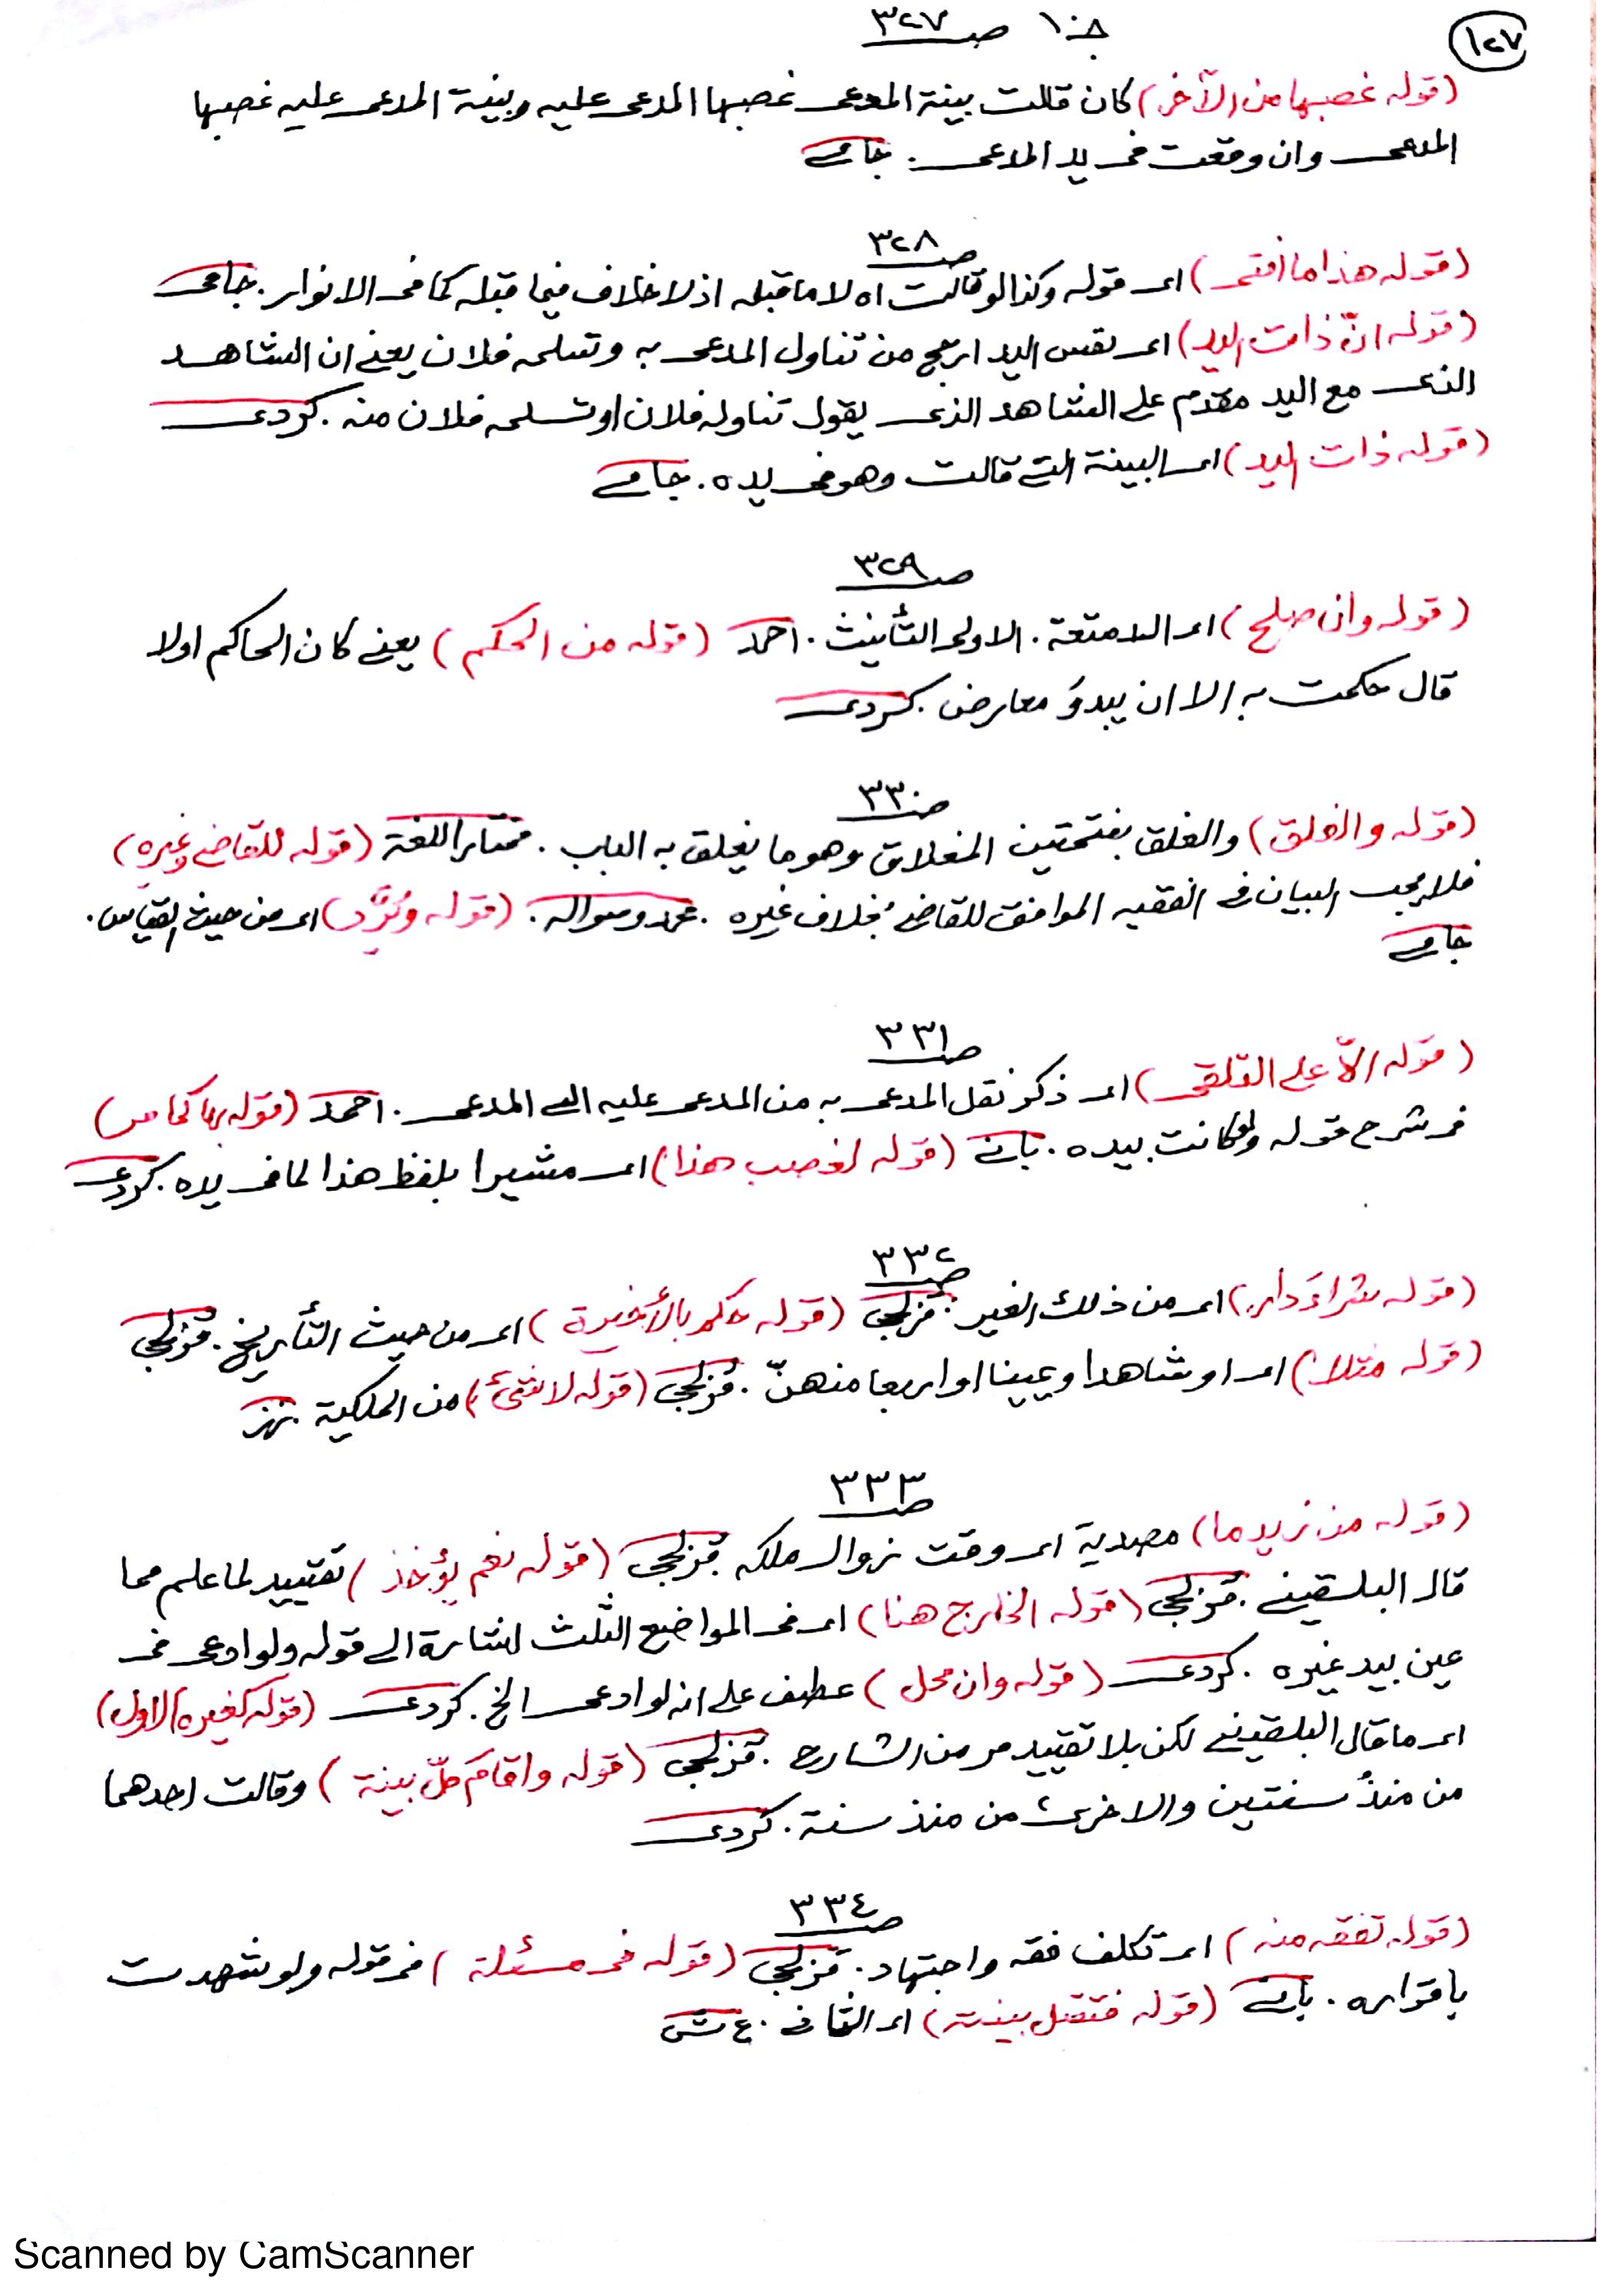 ١٢٧
ج١٠ صـ ٣٢٧
(قوله غصبها من الآخر) كان قالت بينة المدعى غصبها المدعى عليه وبينة المدعى عليه غصبها
المدعى وان وقعت فى يد المدعى . جامى
صـ ٣٢٨
(قوله هذا ما افتى) اى قوله وكذا لو قالت اه لا ما قبله اذ لا خلاف فيما قبله كما فى الانوار . جامى
(قوله انّ ذات اليد) اى نفس اليد ارجح من تناول المدعى به وتسلمه فلان يعنى ان الشاهد
الذى مع اليد مقدم على الشاهد الذى يقول تناوله فلان او تسلمه فلان منه . كردى
(قوله ذات اليد) اى البينة التى قالت وهو فى يده . جامى
صـ ٣٢٩
(قوله وان صلح) اى الامتعة . الاولى التأنيث . احمد (قوله من الحكم) يعنى كان الحاكم اولا
قال حكمت به الا ان يبدؤ معارض . كردى
صـ ٣٣٠
(قوله والغلق) والغلق بفتحتين المغلاق وهو ما يغلق به الباب . مختار اللغة (قوله للقاضى وغيره)
فلا يجب البيان فى الفقيه الموافق للقاضى بخلاف غيره . (قوله وتُرَّد) اى من حيث القياس .
جامى
صـ ٣٣١
(قوله الّا على التلقى) اى ذكر نقل المدعى به من المدعى عليه الى المدعى . احمد (قوله بها كما مر)
فى شرح قوله ولو كانت بيده . بانى (قوله لغصب هذا) اى مشيرا بلفظ هذا لما فى يده . كردى
صـ ٣٣٢
(قوله شراءَ دار) اى من ذلك الغير . قزلجى (قوله حكم بالأخيرة) اى من حيث التأريخ . قزلجى
(قوله مثلا) اى او شاهدا ويمينا او اربعا منهنّ . قزلجى (قوله لا شئ) من الملكية .
صـ ٣٣٣
(قوله من زيد ما) مصدرية اى وقت زوال ملكه . قزلجى (قوله نعم يؤخذ) تقييد لما علم مما
قال البلقينى . قزلجى (قوله الخارج هنا) اى فى المواضع الثلث اشارة الى قوله ولو ادعى فى
عين بيد غيره . كردى (قوله وان محل) عطف على انه لو ادعى الخ . كردى (قوله كغيره الاول)
اى ما قال البلقينى لكن بلا تقييد مر من الشارح . قزلجى (قوله واقام كلّ بينة) وقالت احدهما
من منذُ سنتين والاخرى من منذ سنة . كردى
صـ ٣٣٤
(قوله تفقه منه) اى تكلف فقه واجتهاد . قزلجى (قوله فى مسئلة) فى قوله ولو شهدت
باقراره . بانى (قوله فتقبل بينته) اى القانى . ع ش
Scanned by CamScanner